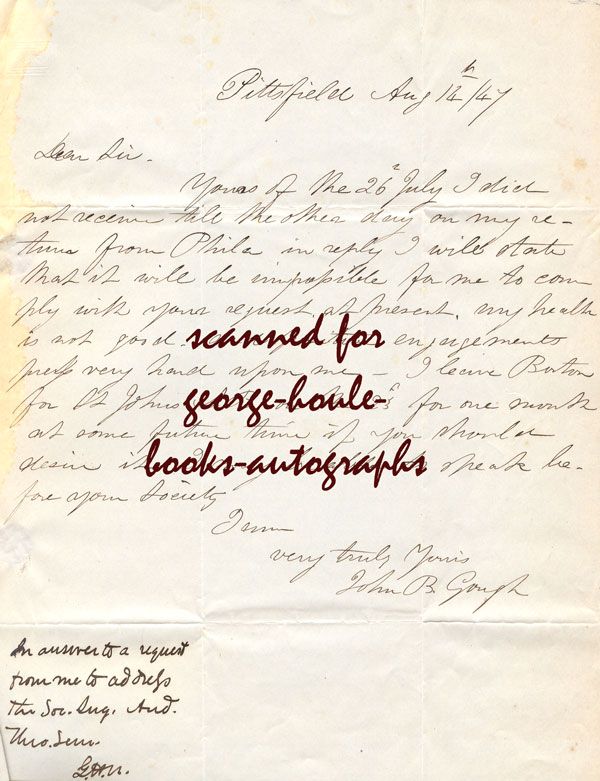 Pittsfield Aug 14th/47
Dear Sir.
Yours of the 26th July I did
not receive till the other day on my re-
turn from Phila in reply I will state
that it will be impossible for me to com
ply with your request at present, my health
is not good scanned for engagements
press very hard upon me – I leave Boston
for St Johns george-houle- for one month
at some future time if you should
desire it books-autographs speak be-
fore your Society
I am
very truly Yours
John B. Gough
In answer to a request
from me to address
the Soc. Inq. And.
Theo. Sem.